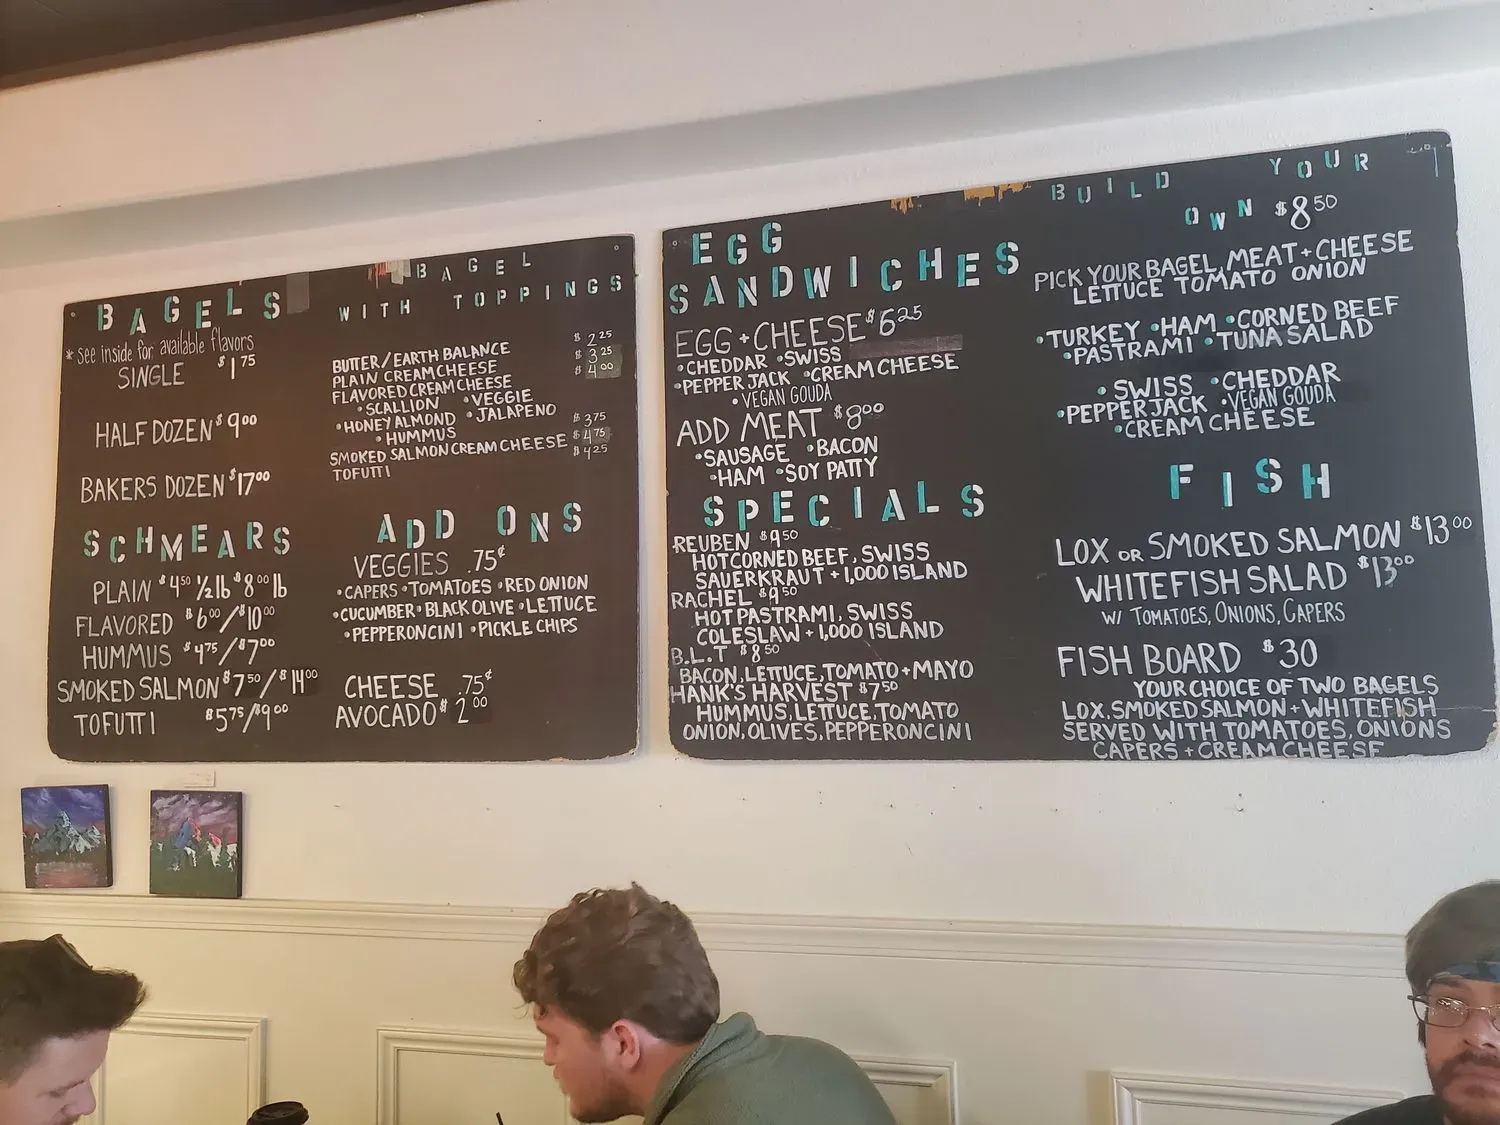 BAGELS
* see inside for available flavors
SINGLE $1 75
HALF DOZEN $9 00
BAKERS DOZEN $17 00
SCHMEARS
PLAIN $4 50 ½ lb $8 00 lb
FLAVORED $6 00 / $10 00
HUMMUS $4 75 / $7 00
SMOKED SALMON $7 50 / $14 00
TOFUTTI $5 75 / $9 00
BAGEL
WITH TOPPINGS
BUTTER/EARTH BALANCE $2 25
PLAIN CREAM CHEESE $3 25
FLAVORED CREAM CHEESE $4 00
•SCALLION •VEGGIE
•HONEY ALMOND •JALAPENO
•HUMMUS $3 75
SMOKED SALMON CREAM CHEESE $4 75
TOFUTTI $4 25
ADD ONS
VEGGIES .75¢
•CAPERS •TOMATOES •RED ONION
•CUCUMBER •BLACK OLIVE •LETTUCE
•PEPPERONCINI •PICKLE CHIPS
CHEESE .75¢
AVOCADO $2 00
EGG
SANDWICHES
EGG + CHEESE $6 25
•CHEDDAR •SWISS
•PEPPER JACK •CREAM CHEESE
•VEGAN GOUDA
ADD MEAT $8 00
•SAUSAGE •BACON
•HAM •SOY PATTY
SPECIALS
REUBEN $9 50
HOT CORNED BEEF, SWISS
SAUERKRAUT + 1,000 ISLAND
RACHEL $9 50
HOT PASTRAMI, SWISS
COLESLAW + 1,000 ISLAND
B.L.T $8 50
BACON, LETTUCE, TOMATO + MAYO
HANK'S HARVEST $7 50
HUMMUS, LETTUCE, TOMATO
ONION, OLIVES, PEPPERONCINI
BUILD YOUR
OWN $8 50
PICK YOUR BAGEL, MEAT + CHEESE
LETTUCE TOMATO ONION
•TURKEY •HAM •CORNED BEEF
•PASTRAMI •TUNA SALAD
•SWISS •CHEDDAR
•PEPPER JACK •VEGAN GOUDA
•CREAM CHEESE
FISH
LOX OR SMOKED SALMON $13 00
WHITEFISH SALAD $13 00
W/ TOMATOES, ONIONS, CAPERS
FISH BOARD $30
YOUR CHOICE OF TWO BAGELS
LOX, SMOKED SALMON + WHITEFISH
SERVED WITH TOMATOES, ONIONS
CAPERS + CREAM CHEESE